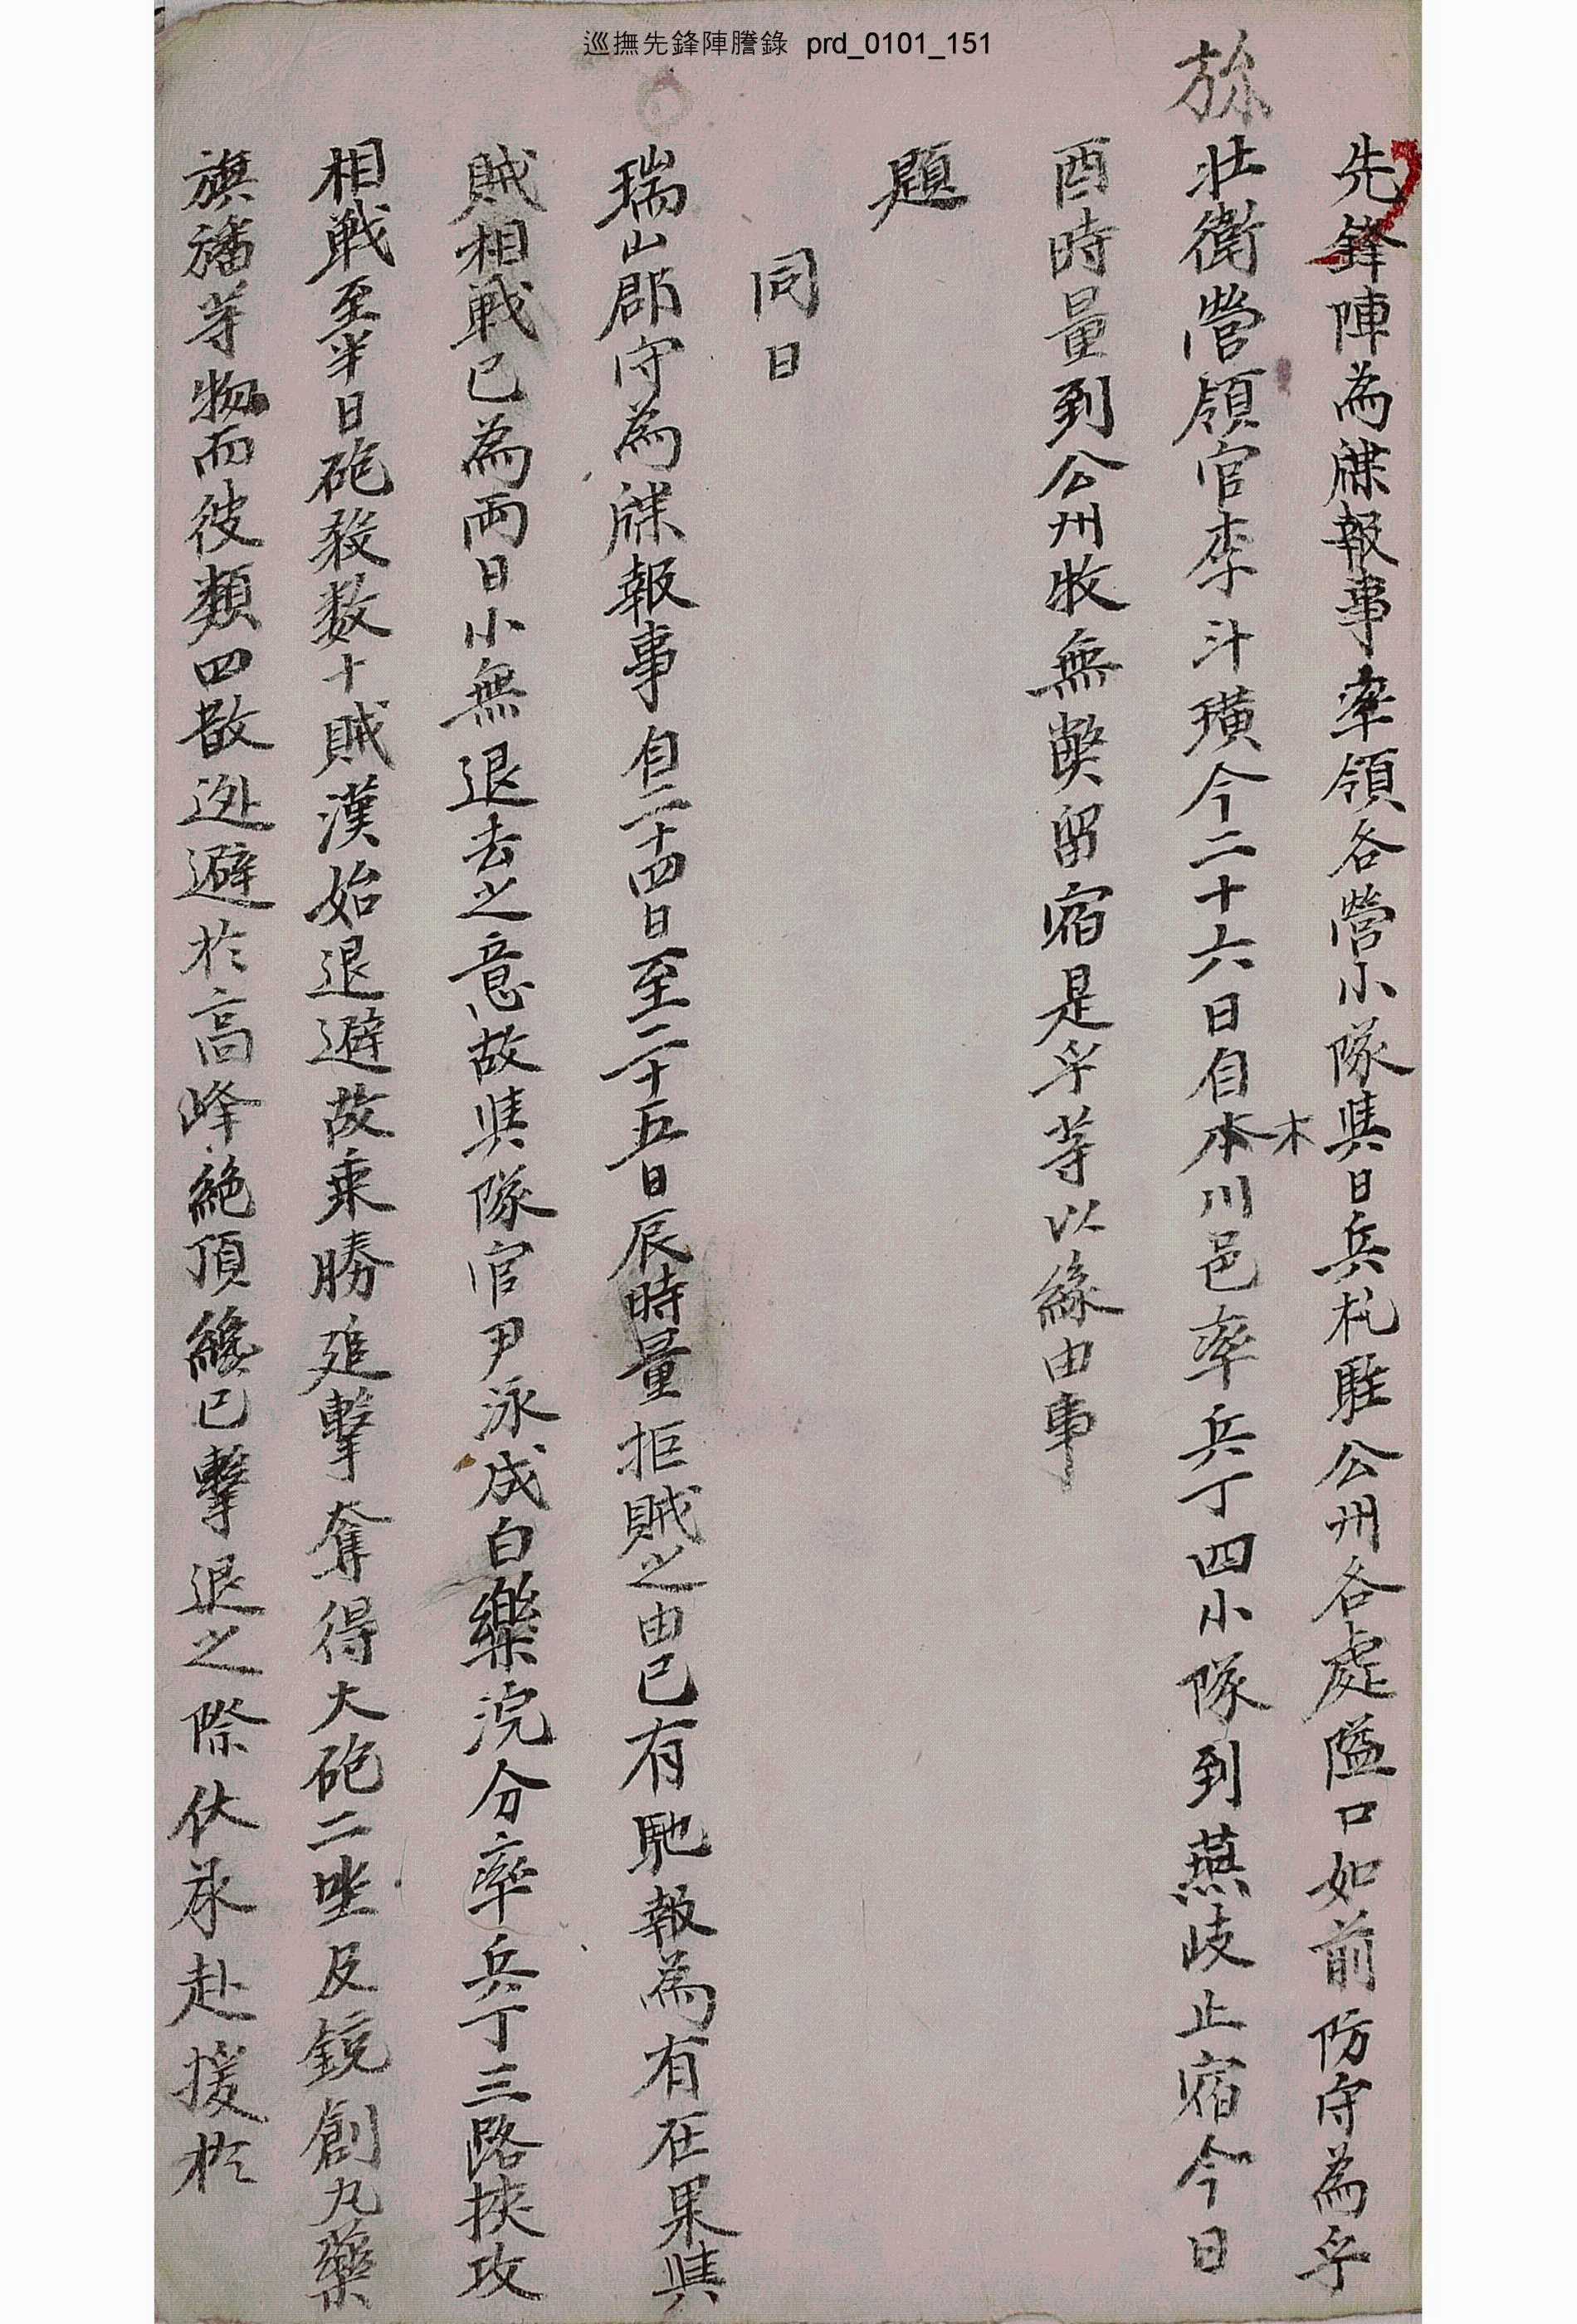 巡撫先鋒陣謄錄 prd_0101_151
先鋒陣為牒報事率領各營小隊與日兵札駐公州各處隘口如前防守為乎
旀壯衛營領官李斗璜今二十六日自本川邑率兵丁四小隊到燕岐止宿今日
木
酉時量到公州牧無弊留宿是乎等以緣由事
題
同日
瑞山郡守為牒報事自二十四日至二十五日辰時量拒賊之由已有馳報為有在果與
賊相戰已為兩日小無退去之意故與隊官尹泳成白樂浣分率兵丁三路挾攻
相戰至半日砲殺数十賊漢始退避故乘勝追擊奪得大砲二坐及鏡創丸藥
旗旛等物而彼類四散迯避於高峰絶頂纔已擊退之際伏承赴援於